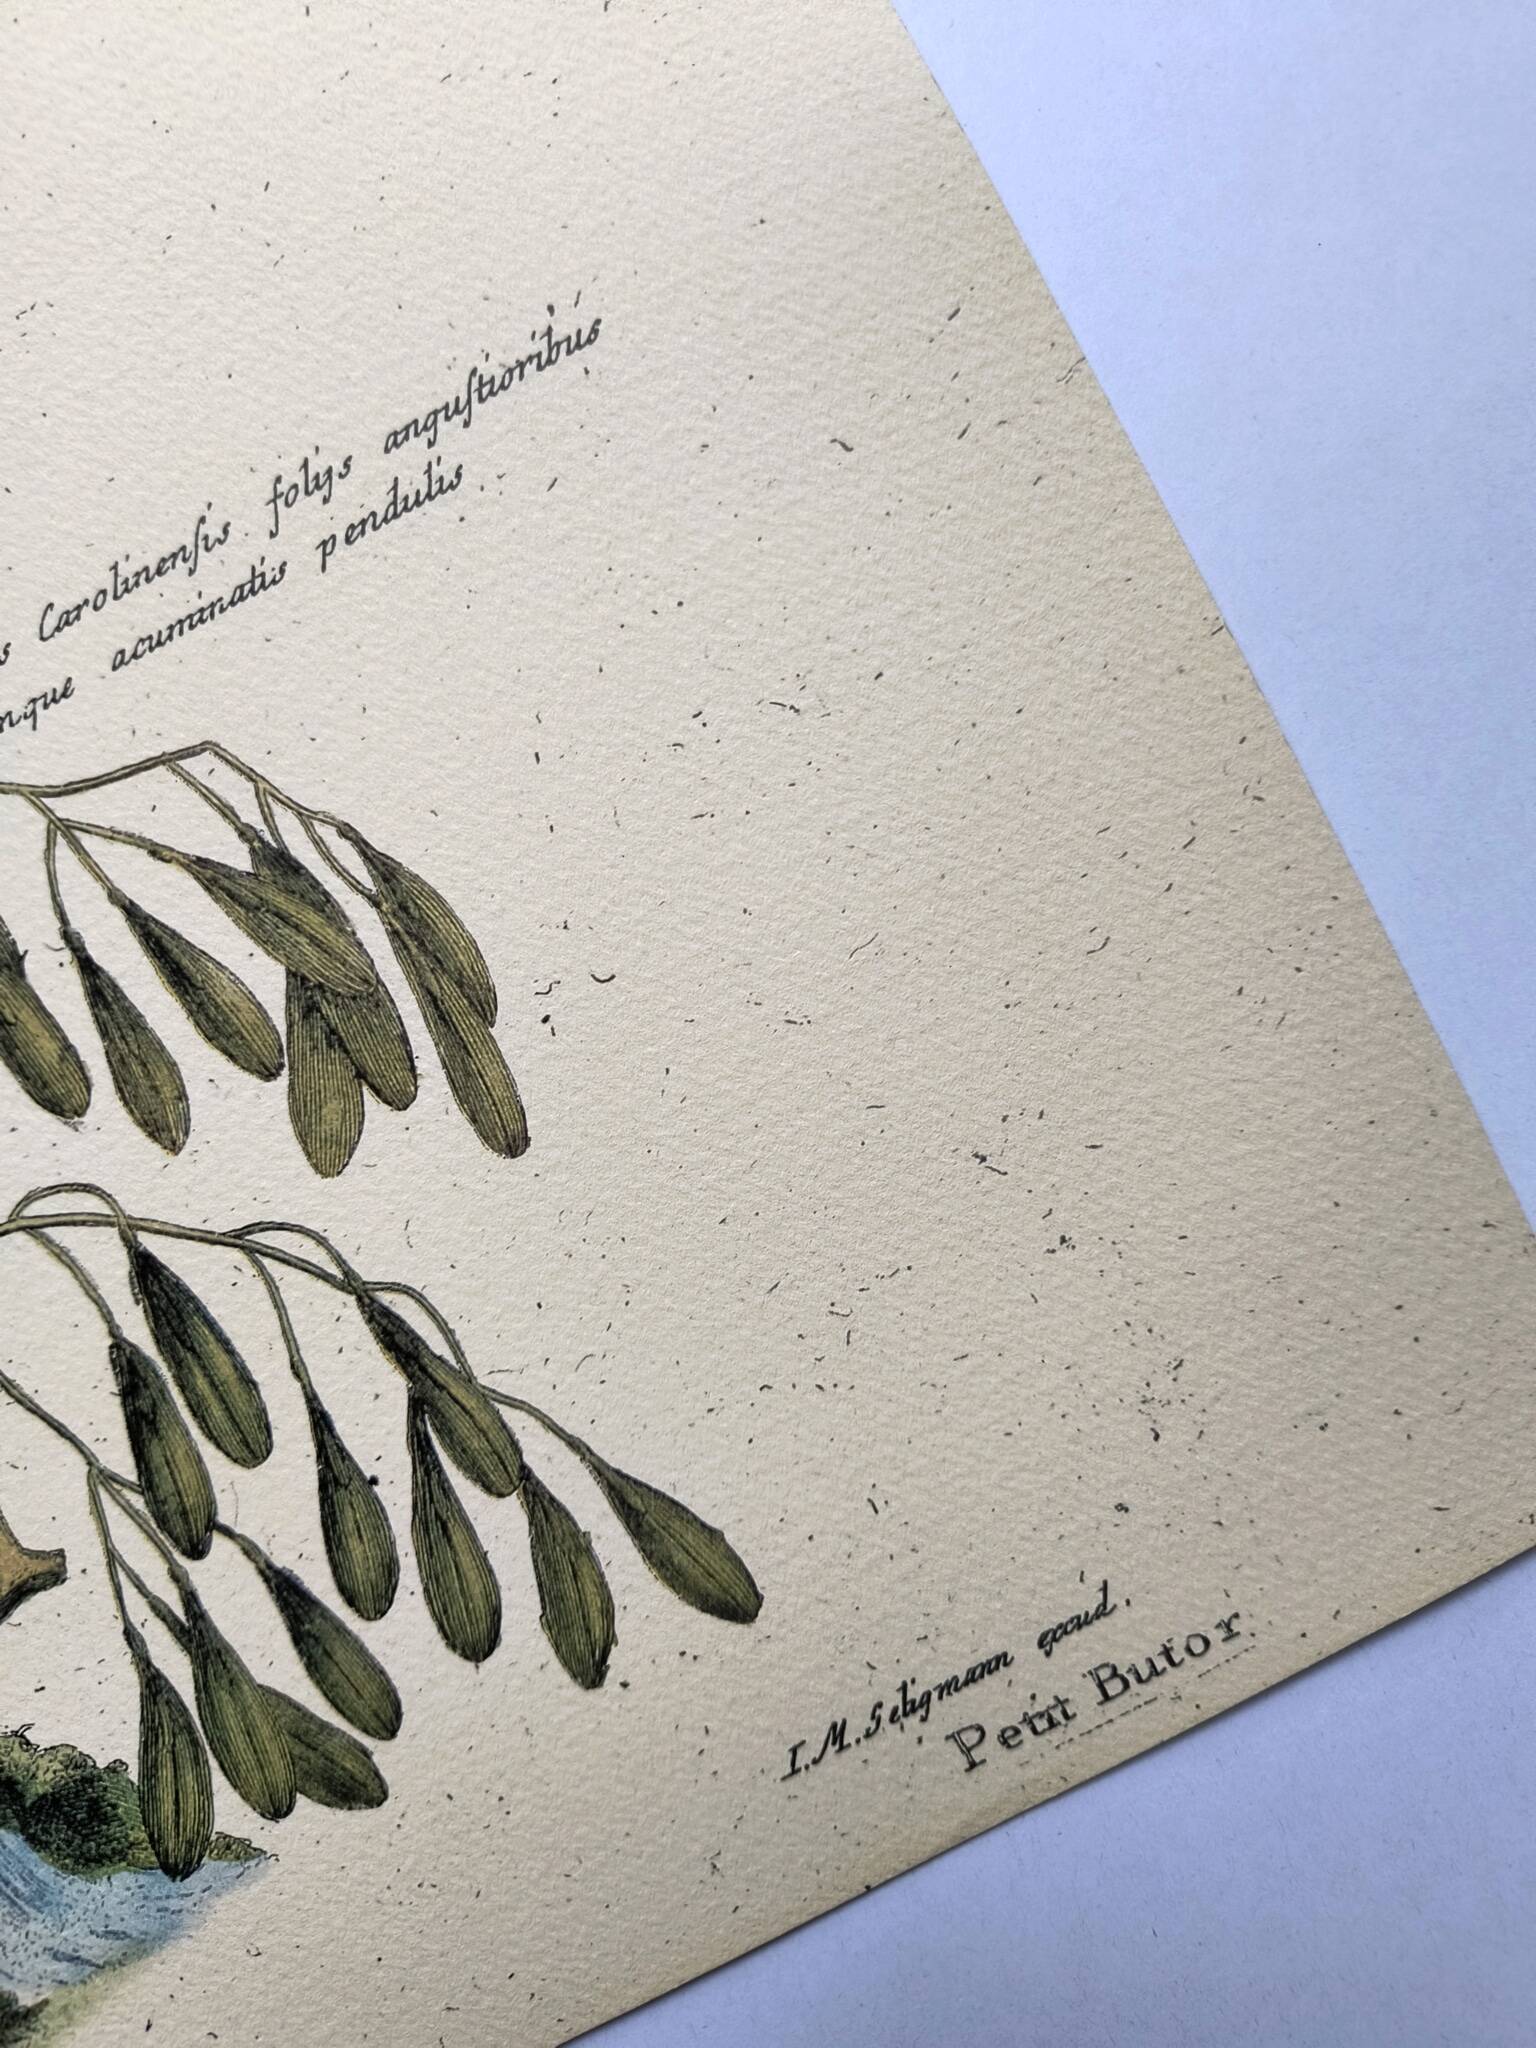 s Carolinenſis foliis anguſtioribus
nque acuminatis pendulis
I. M. Seligmann excud.
Petit Butor